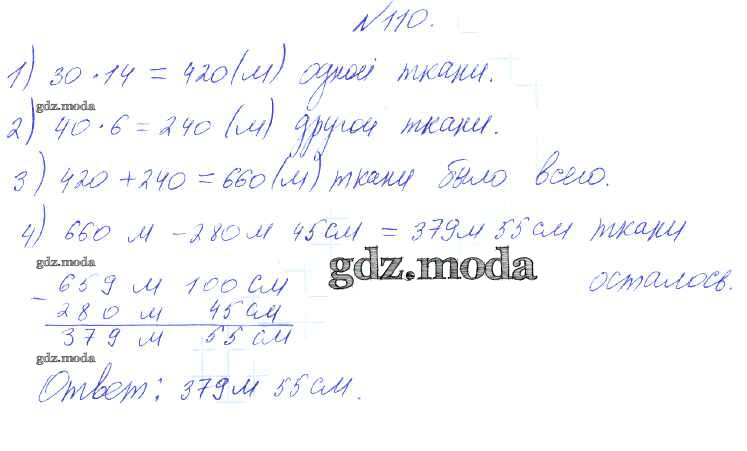 №110.
1) 30·14=420(м) одной ткани.
gdz.moda
2) 40·6=240 (м) другой ткани.
3) 420+240=660(м) ткани было всего.
4) 660 м -280м 45см = 379м 55см ткани
осталось.
gdz.moda
gdz.moda
- 659 м 100 см
280 м 45см
379 м 55 см
gdz.moda
Ответ: 379м 55см.